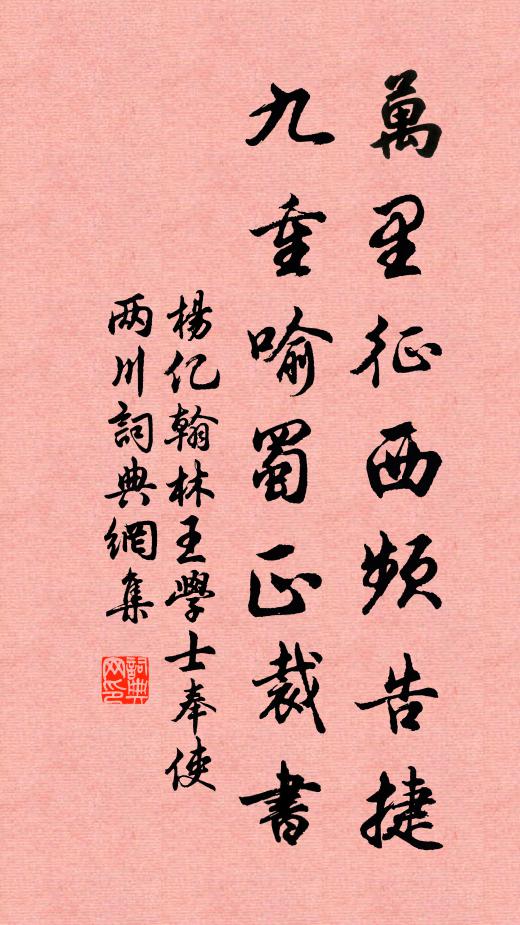 萬里征西頻告捷
九重喻蜀正裁書
楊亿翰林王學士奉使
两川詞典網集
詞典
网印